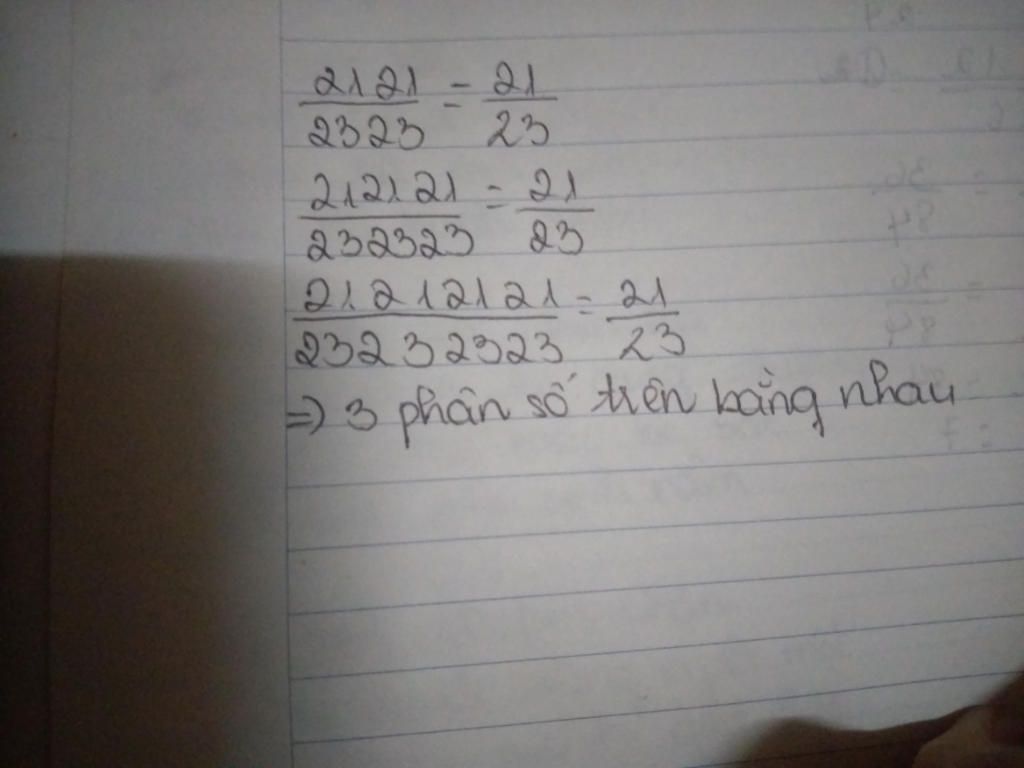 2121/2323 = 21/23
212121/232323 = 21/23
21212121/23232323 = 21/23
=> 3 phân số trên bằng nhau